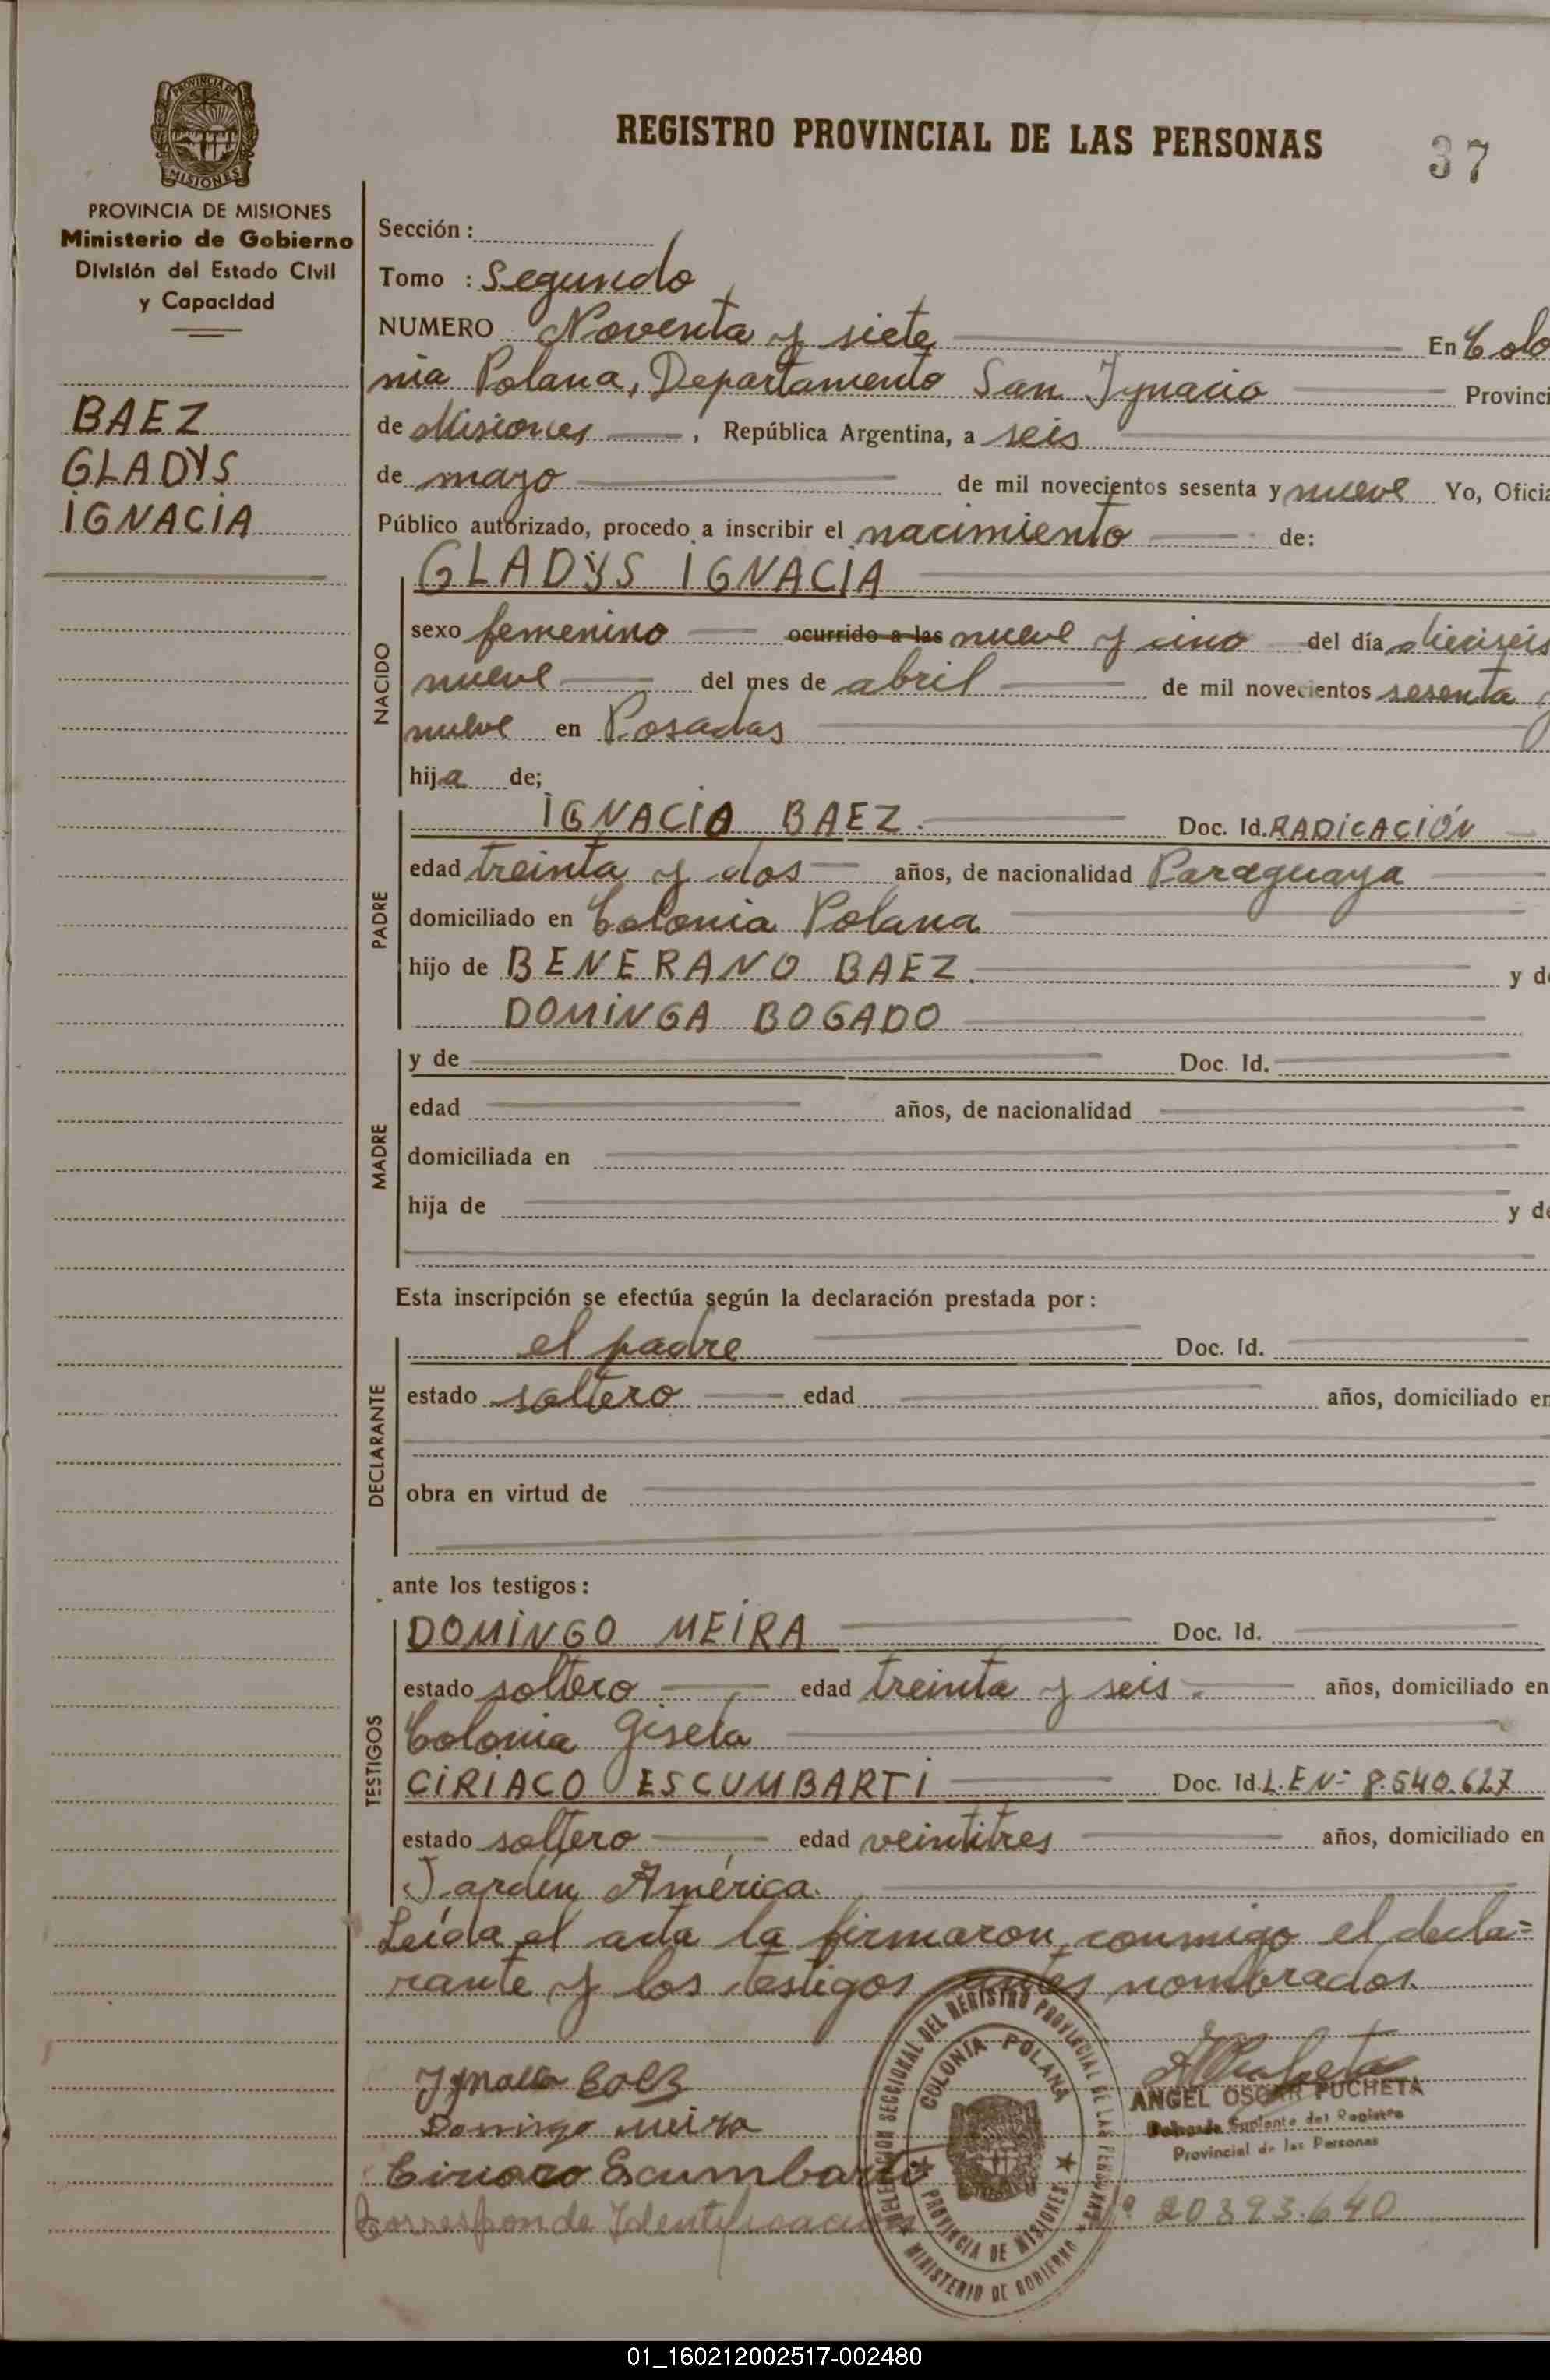 PROVINCIA DE
MISIONES
PROVINCIA DE MISIONES
Ministerio de Gobierno
División del Estado Civil
y Capacidad
BAEZ
GLADYS
IGNACIA
REGISTRO PROVINCIAL DE LAS PERSONAS
37
Sección :
Tomo : Segundo
NUMERO Noventa y siete En Colo
nia Polana, Departamento San Ygnacio Provinci
de Misiones , República Argentina, a seis
de mayo de mil novecientos sesenta y nueve Yo, Oficia
Público autorizado, procedo a inscribir el nacimiento de:
NACIDO
GLADYS IGNACIA
sexo femenino ocurrido a las nueve y cinco del día dieciseis
nueve del mes de abril de mil novecientos sesenta y
nueve en Posadas
hija de;
PADRE
IGNACIO BAEZ. Doc. Id. RADICACIÓN
edad treinta y dos años, de nacionalidad Paraguaya
domiciliado en Colonia Polana
hijo de BENERANO BAEZ. y de
DOMINGA BOGADO
MADRE
y de Doc. Id.
edad años, de nacionalidad
domiciliada en
hija de y de
Esta inscripción se efectúa según la declaración prestada por :
DECLARANTE
el padre Doc. Id.
estado soltero edad años, domiciliado en
obra en virtud de
ante los testigos :
TESTIGOS
DOMINGO MEIRA Doc. Id.
estado soltero edad treinta y seis. años, domiciliado en
Colonia Gisela
CIRIACO ESCUMBARTI Doc. Id. L.E Nº 8.540.627
estado soltero edad veintitres años, domiciliado en
Jardín América.
Leída el acta la firmaron conmigo el decla=
rante y los testigos antes nombrados.
Ygnacio Baez
Domingo Meira
Ciriaco Escumbarti
ANGEL OSCAR PUCHETA
Delegado Suplente del Registro
Provincial de las Personas
DELEGACION SECCIONAL DEL REGISTRO PROVINCIAL DE LAS PERSONAS
COLONIA POLANA
PROVINCIA DE MISIONES
MINISTERIO DE GOBIERNO
Corresponde Identificación Nº 20393.640
01_160212002517-002480